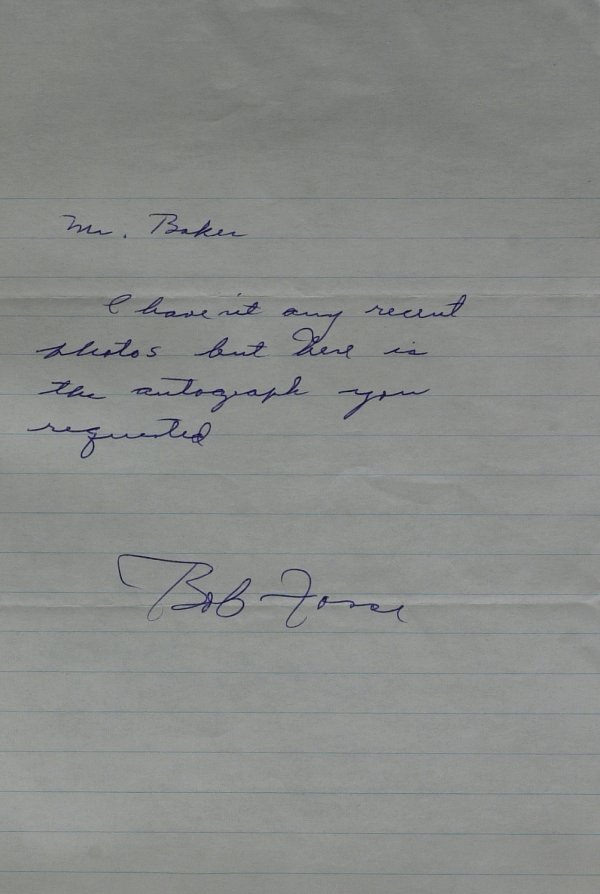 Mr. Baker
I have'nt any recent
photos but here is
the autograph you
requested
Bob Fosse